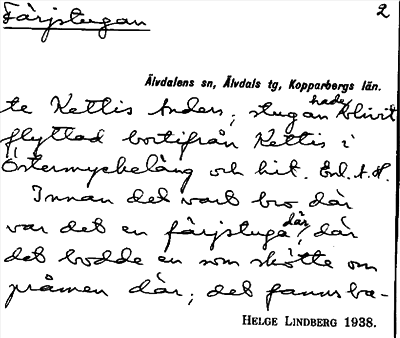 Färjstugan 2
Älvdalens sn, Älvdals tg, Kopparbergs län.
te Kettis Anders; stugan hade blivit
flyttad bortifrån Kettis i
Östermyckeläng och hit. Enl. A.H.
Innan det vart bro där
var det en färjstuga där, där
det bodde en som skötte om
pråmen där; det fanns ba-
HELGE LINDBERG 1938.